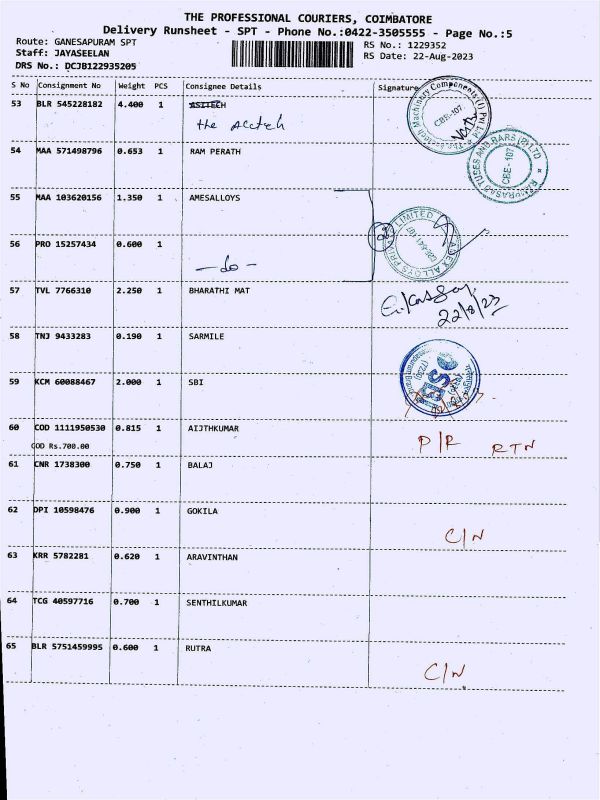 THE PROFESSIONAL COURIERS, COIMBATORE
Delivery Runsheet - SPT - Phone No.:0422-3505555 - Page No.:5
Route: GANESAPURAM SPT
RS No.: 1229352
Staff: JAYASEELAN
RS Date: 22-Aug-2023
DRS No.: DCJB122935205
S No Consignment No Weight PCS Consignee Details Signature
53 BLR 545228182 4.400 1 ASITECH
the
54 MAA 571498796 0.653 1 RAM PERATH
CBE-107
55 MAA 103620156 1.350 1 AMESALLOYS
56 PRO 15257434 0.600 1
- do -
57 TVL 7766310 2.250 1 BHARATHI MAT
22/8/23
58 TNJ 9433283 0.190 1 SARMILE
59 KCM 60088467 2.000 1 SBI
60 COD 1111950530 0.815 1 AIJTHKUMAR
COD Rs.700.00
P/R RTN
61 CNR 1738300 0.750 1 BALAJ
62 DPI 10598476 0.900 1 GOKILA
C/N
63 KRR 5782281 0.620 1 ARAVINTHAN
64 TCG 40597716 0.700 1 SENTHILKUMAR
65 BLR 5751459995 0.600 1 RUTRA
C/N